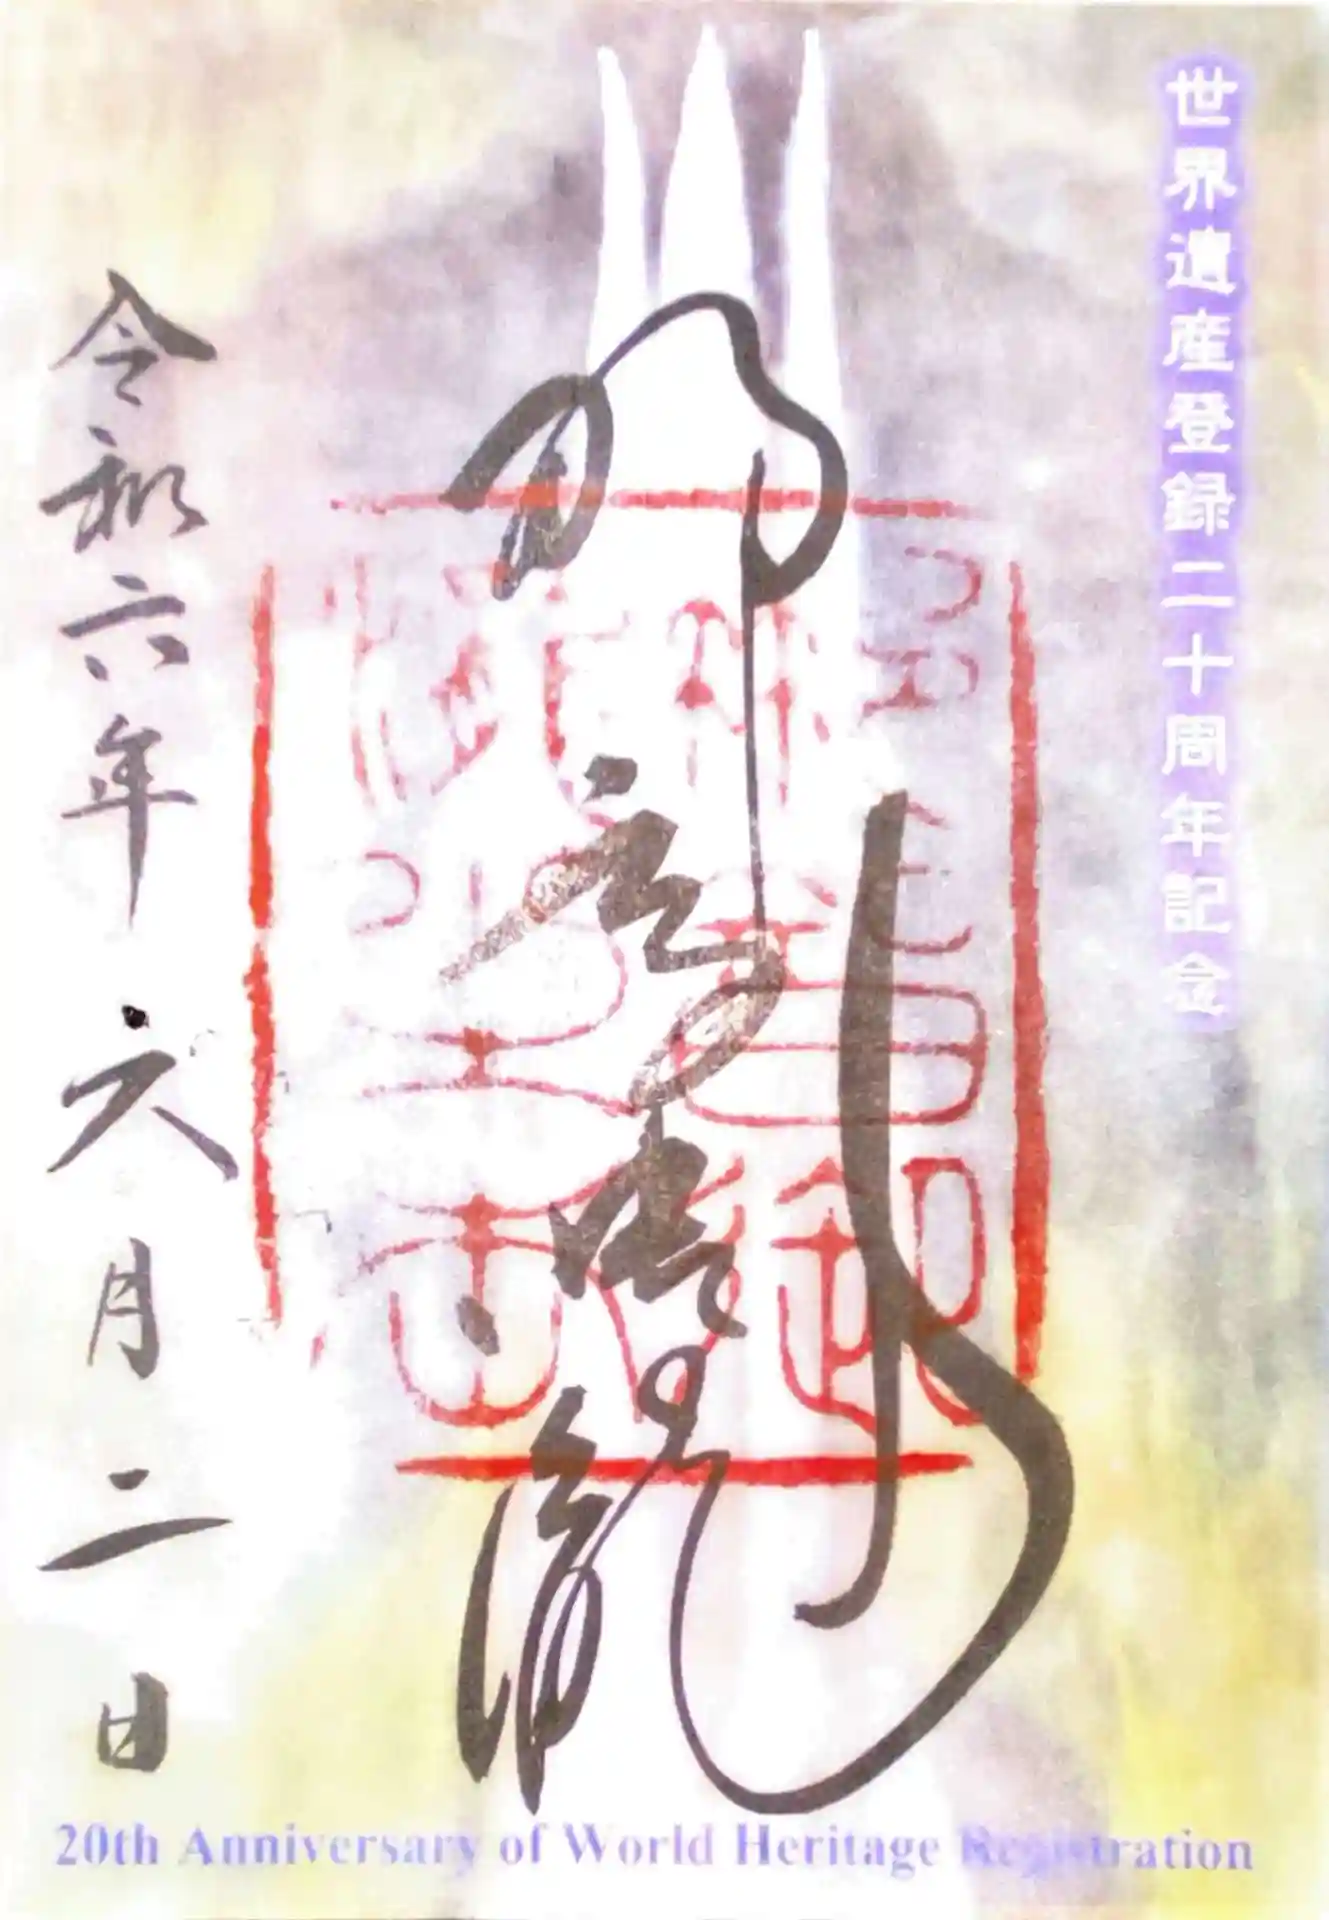 世界遺産登録二十周年記念
那智御瀧
令和六年六月二日
20th Anniversary of World Heritage Registration